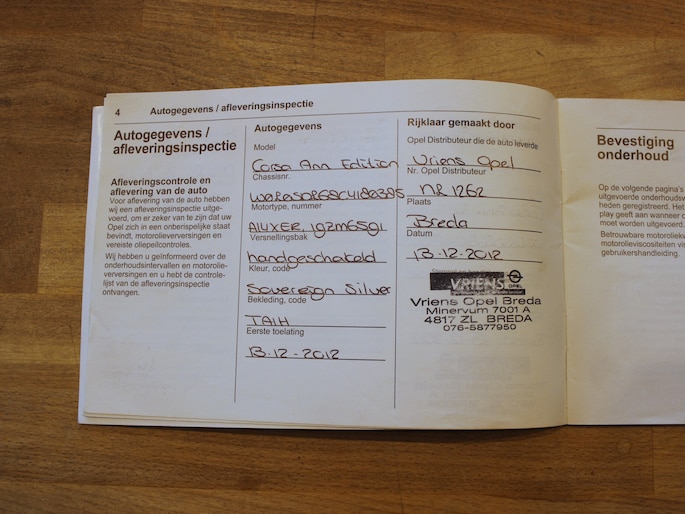 4 Autogegevens / afleveringsinspectie
Autogegevens /
afleveringsinspectie
Afleveringscontrole en
aflevering van de auto
Voor aflevering van de auto hebben
wij een afleveringsinspectie uitge-
voerd, om er zeker van te zijn dat uw
Opel zich in een onberispelijke staat
bevindt, motorolieverversingen en
vereiste oliepeilcontroles.
Wij hebben u geïnformeerd over de
onderhoudsintervallen en motorolie-
verversingen en u hebt de controle-
lijst van de afleveringsinspectie
ontvangen.
Autogegevens
Model
Corsa Ann Edition
Chassisnr.
Motortype, nummer
A14XER, 19ZM6591
Versnellingsbak
handgeschakeld
Kleur, code
Sovereign Silver
Bekleding, code
TAIH
Eerste toelating
13-12-2012
Rijklaar gemaakt door
Opel Distributeur die de auto leverde
Vriens Opel
Nr. Opel Distributeur
NR 1262
Plaats
Breda
Datum
13-12-2012
VRIENS OPEL
Vriens Opel Breda
Minervum 7001 A
4817 ZL BREDA
076-5877950
Bevestiging
onderhoud
Op de volgende pagina's
uitgevoerde onderhoudsw
heden geregistreerd. Het
play geeft aan wanneer o
moet worden uitgevoerd.
Betrouwbare motoroliekw
motorolieviscositeiten vis
gebruikershandleiding.